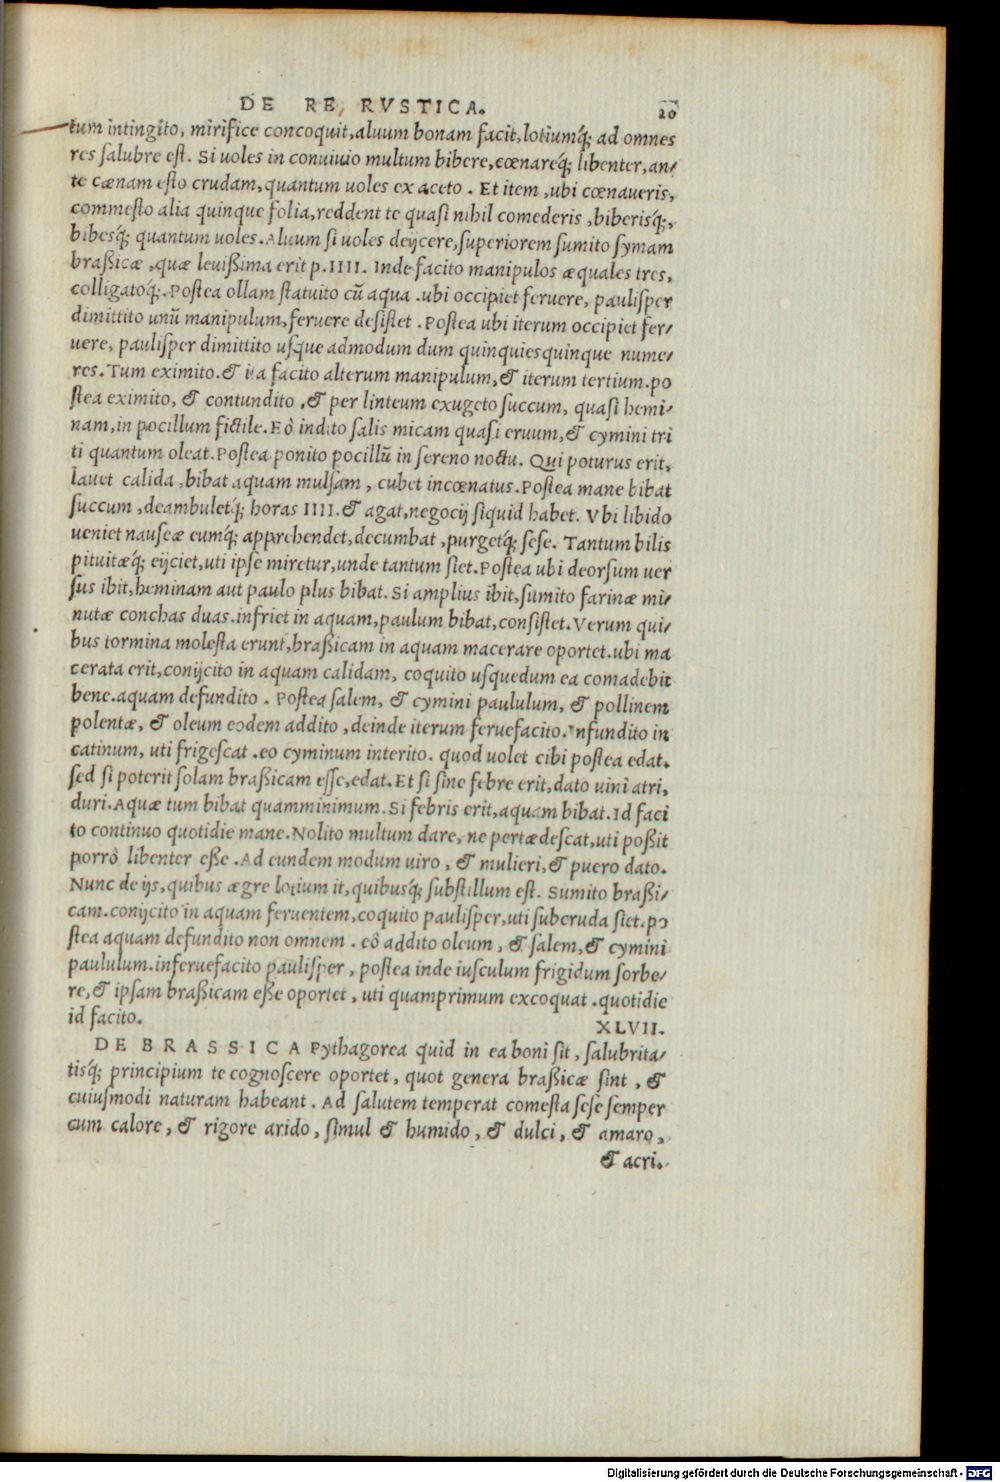 DE RE RVSTICA. 20
tum intingito, mirifice concoquit, aluum bonam facit, lotiumq́; ad omnes
res salubre est. Si uoles in conuiuio multum bibere, cœnareq́; libenter, an/
te cænam esto crudam, quantum uoles ex aceto. Et item, ubi cœnaueris,
commesto alia quinque folia, reddent te quasi nihil comederis, biberisq́;,
bibesq́; quantum uoles. Aluum si uoles deijcere, superiorem sumito symam
braßicæ, quæ leuißima erit p. IIII. Inde facito manipulos æquales tres,
colligatoq́;. Postea ollam statuito cũ aqua. ubi occipiet feruere, paulisper
dimittito unũ manipulum, feruere desistet. Postea ubi iterum occipiet fer/
uere, paulisper dimittito usque admodum dum quinquiesquinque nume/
res. Tum eximito. & ita facito alterum manipulum, & iterum tertium. po
stea eximito, & contundito, & per linteum exugeto succum, quasi hemi/
nam, in pocillum fictile. Eò indito salis micam quasi eruum, & cymini tri
ti quantum oleat. Postea ponito pocillũ in sereno noctu. Qui poturus erit,
lauet calida, bibat aquam mulsam, cubet incœnatus. Postea mane bibat
succum, deambuletq́; horas IIII. & agat, negocij siquid habet. Vbi libido
ueniet nauseæ eumq́; apprehendet, decumbat, purgetq́; sese. Tantum bilis
pituitæq́; eijciet, uti ipse miretur, unde tantum siet. Postea ubi deorsum uer
sus ibit, heminam aut paulo plus bibat. Si amplius ibit, sumito farinæ mi/
nutæ conchas duas. infriet in aquam, paulum bibat, consistet. Verum qui/
bus tormina molesta erunt, braßicam in aquam macerare oportet. ubi ma
cerata erit, conijcito in aquam calidam, coquito usquedum ea comadebit
bene. aquam defundito. Postea salem, & cymini paululum, & pollinem
polentæ, & oleum eodem addito, deinde iterum feruefacito. Infundito in
catinum, uti frigescat. eo cyminum interito. quod uolet cibi postea edat.
sed si poterit solam braßicam esse, edat. Et si sine febre erit, dato uini atri,
duri. Aquæ tum bibat quamminimum. Si febris erit, aquam bibat. Id faci
to continuo quotidie mane. Nolito multum dare, ne pertædescat, uti poßit
porrò libenter eße. Ad eundem modum uiro, & mulieri, & puero dato.
Nunc de ijs, quibus ægre lotium it, quibusq́; substillum est. Sumito braßi/
cam. conijcito in aquam feruentem, coquito paulisper, uti subcruda siet. po
stea aquam defundito non omnem. eò addito oleum, & salem, & cymini
paululum. inferuefacito paulisper, postea inde iusculum frigidum sorbe/
re, & ipsam braßicam eße oportet, uti quamprimum excoquat. quotidie
id facito. XLVII.
DE BRASSICA Pythagorea quid in ea boni sit, salubrita/
tisq́; principium te cognoscere oportet, quot genera braßicæ sint, &
cuiusmodi naturam habeant. Ad salutem temperat comesta sese semper
cum calore, & rigore arido, simul & humido, & dulci, & amaro,
& acri.
Digitalisierung gefördert durch die Deutsche Forschungsgemeinschaft - DFG